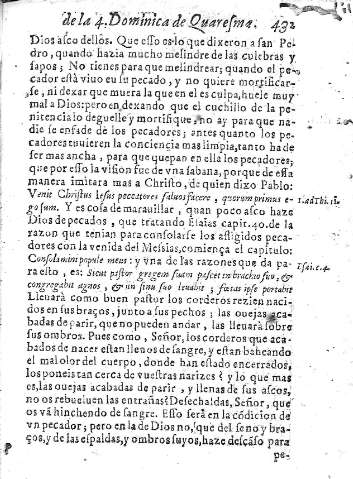 de la 4. Dominica de Quaresma. 432
Dios asco dellos. Que esso es lo que dixeron a san Pe-
dro, quando hazia mucho melindre de las culebras y
sapos; No tienes para que melindrear; quando el pe-
cador está viuo en su pecado, y no quiere mortificar-
se, ni dexar que muera la que en el es culpa, huele muy
mal a Dios: pero en dexando que el cuchillo de la pe-
nitencia lo deguelle y mortifique, no ay para que na-
die se enfade de los pecadores; antes quanto los pe-
cadores tuuieren la conciencia mas limpia, tanto ha de
ser mas ancha, para que quepan en ella los pecadores;
que por esso la vision fue de vna sabana, porque de essa
manera imitara mas a Christo, de quien dixo Pablo:
Venit Christus Iesus peccatores saluos facere, quorum primus e-
go sum. Y es cosa de marauillar, quan poco asco haze
Dios de pecados, que tratando Elaias capit. 40. de la
razon que tenian para consolarse los afligidos peca-
dores con la venida del Messias, comiença el capitulo:
Consolamini popule meus: y vna de las razones que da pa-
ra esto, es: Sicut pastor gregem suum pascet in brachio suo, &
congregabit agnos, & in sinu suo leuabit; fœtas ipse portabit
Lleuará como buen pastor los corderos rezien naci-
dos en sus braços, junto a sus pechos; las ouejas aca-
badas de parir, que no pueden andar, las lleuará sobre
sus ombros. Pues como, Señor, los corderos que aca-
bados de nacer estan llenos de sangre, y estan baheando
el mal olor del cuerpo, donde han estado encerrados,
los poneis tan cerca de vuestras narizes? y lo que mas
es, las ouejas acabadas de parir, y llenas de sus ascos,
no os rebueluen las entrañas? Desechaldas, Señor, que
os vá hinchendo de sangre. Esso será en la cõdicion de
vn pecador; pero en la de Dios no, que del seno y bra-
ços, y de las espaldas, y ombros suyos, haze descãso para
pe-
1. ad Thi. 1.
Isai. c. 4.